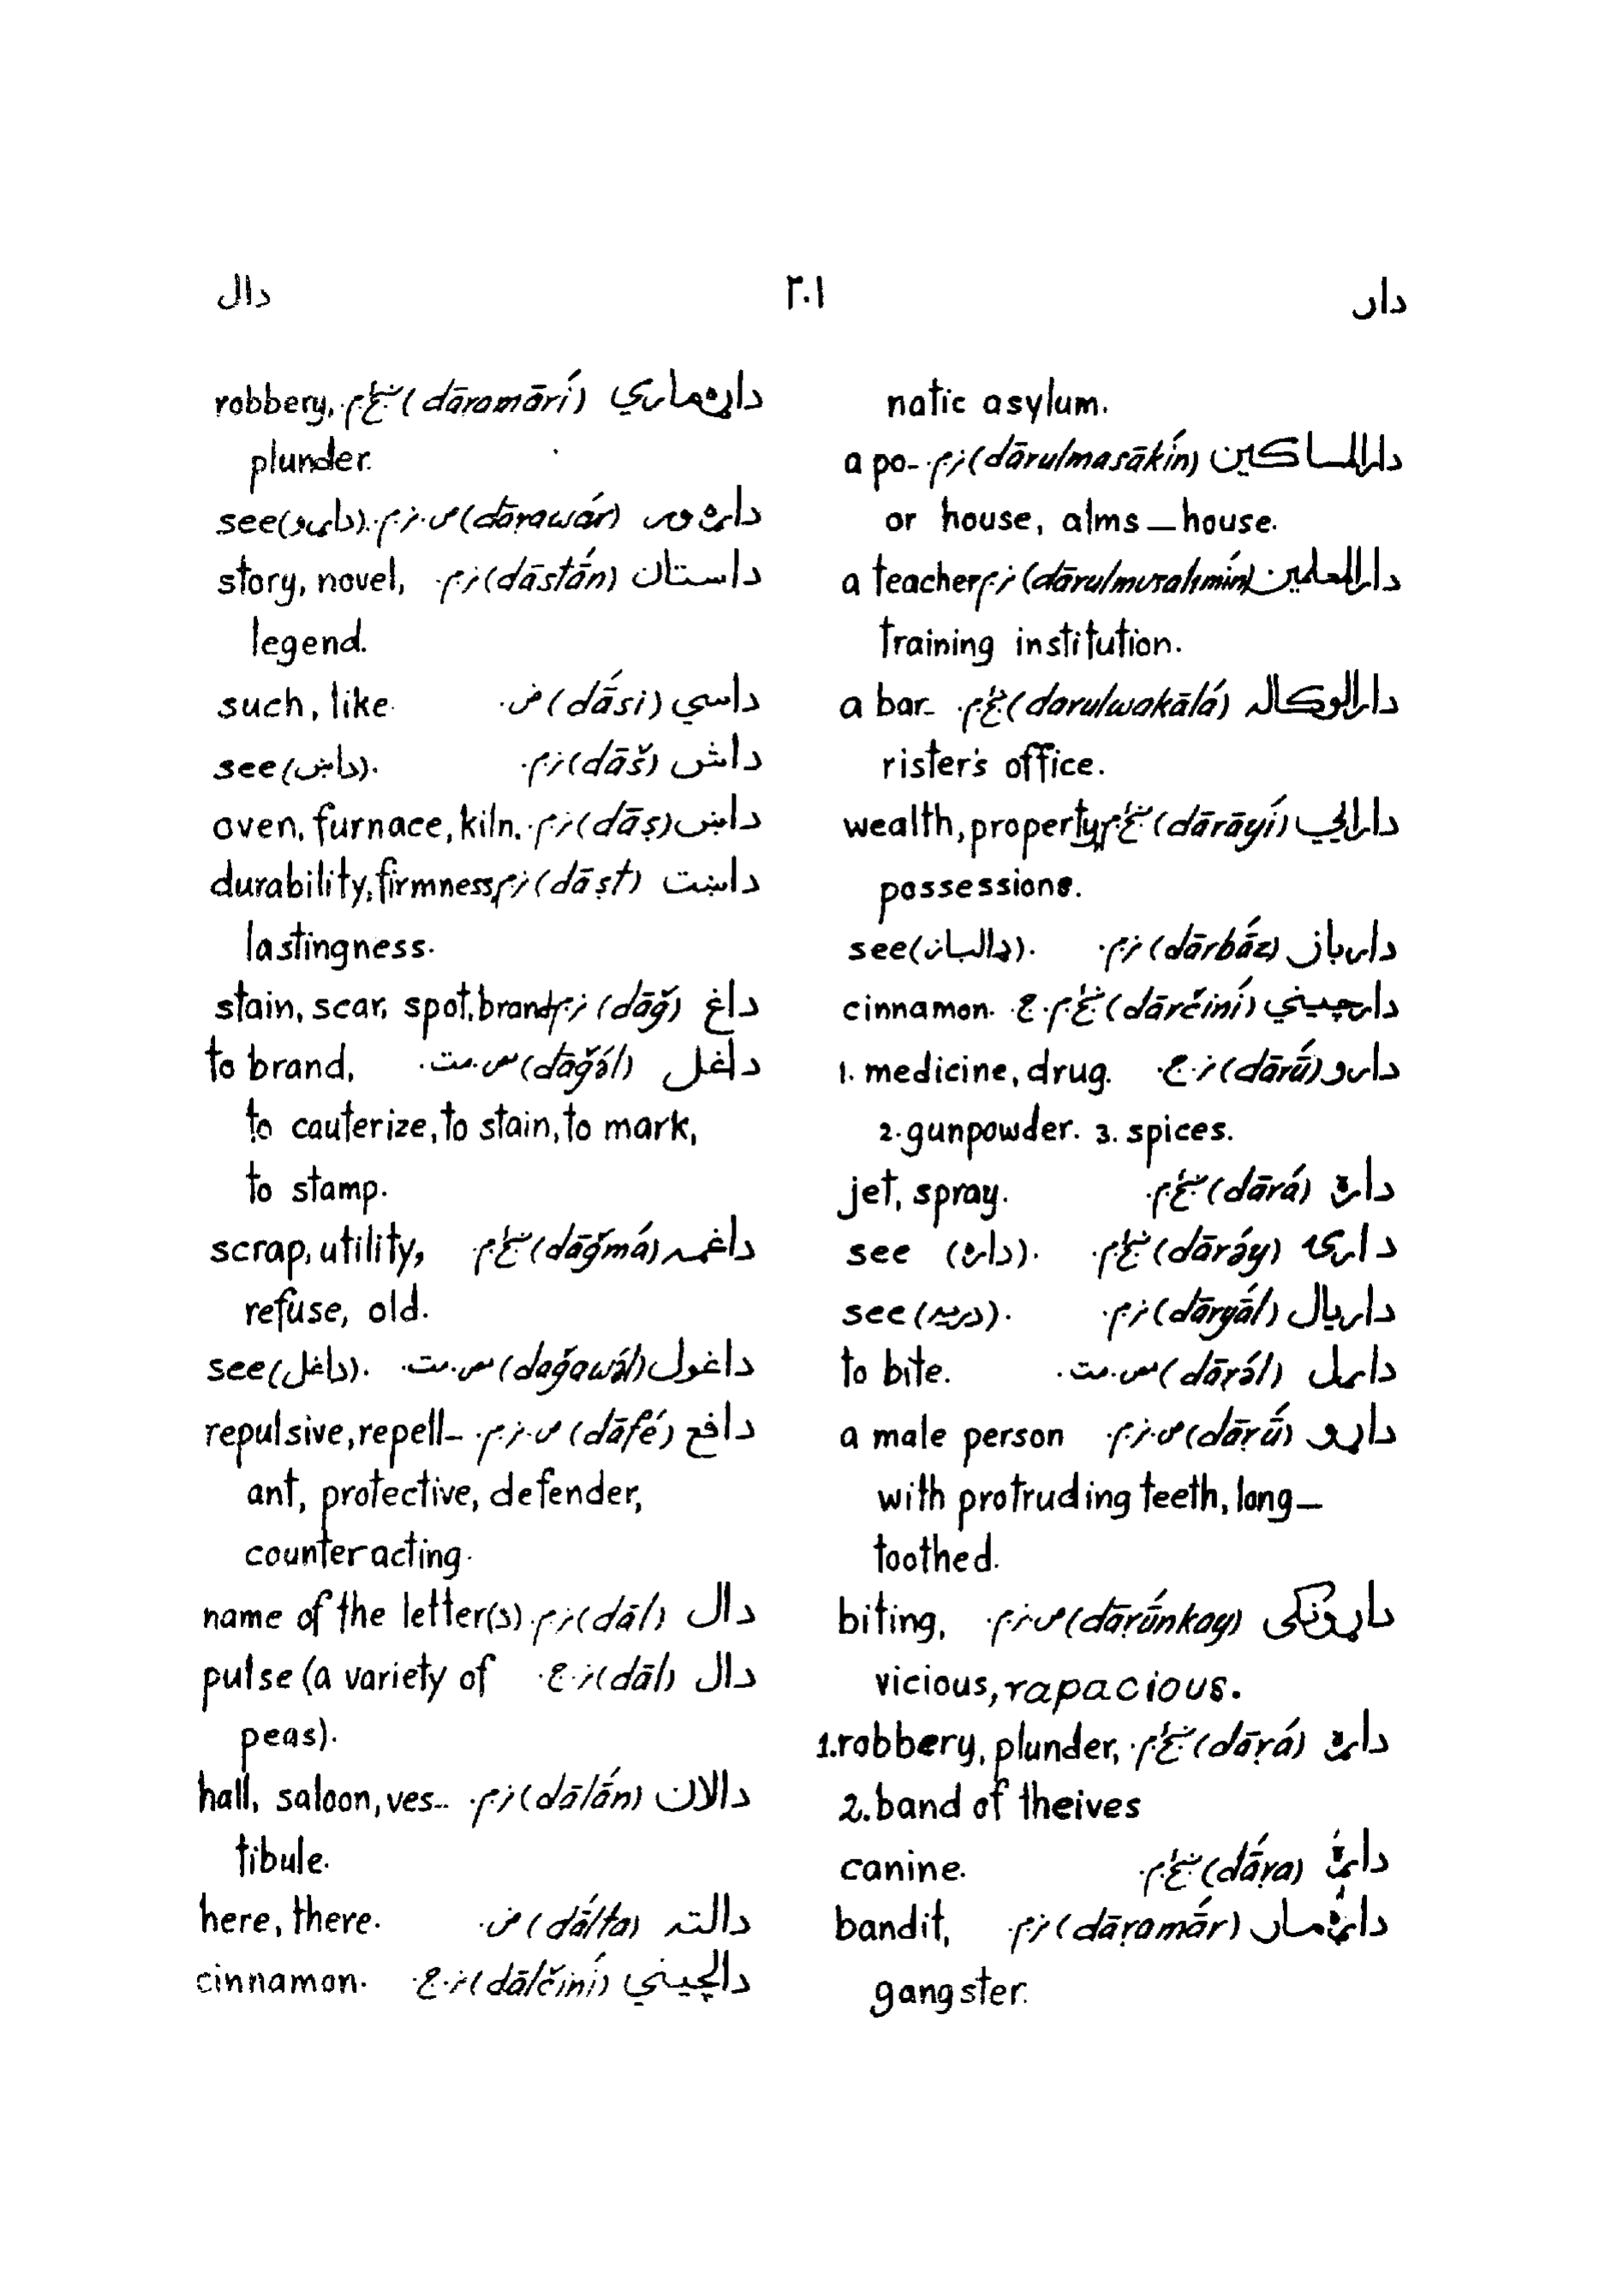 دار ٢٠١ دال
natic asylum.
دارالمساکین (dārulmasākín) ن.م. a po-
or house, alms—house.
دارالمعلمین (dārulmuʿalimín) ن.م. a teacher
training institution.
دارالوکاله (darulwakālá) ښځ.م. a bar-
rister's office.
دارایي (dārāyí) ښځ.م. wealth, property,
possessions.
دارباز (dārbā́z) ن.م. see (دالباز).
دارچیني (dārčiní) ښځ.م.ج. cinnamon.
دارو (dārū́) ن.ج. 1. medicine, drug.
2. gunpowder. 3. spices.
داره (dārá) ښځ.م. jet, spray.
دارۍ (dārə́y) ښځ.م. see (داره).
داریال (dāryā́l) ن.م. see (دریه).
داړل (dāṛə́l) مص.مت. to bite.
داړو (dāṛū́) ص.ن.م. a male person
with protruding teeth, long—
toothed.
داړونکی (dāṛū́nkay) ص.ن.م. biting,
vicious, rapacious.
داړه (dāṛá) ښځ.م. 1. robbery, plunder,
2. band of theives
داړه (dā́ṛa) ښځ.م. canine.
داړه‌مار (dāṛamā́r) ن.م. bandit,
gangster.
داړه‌ماري (dāramārí) ښځ.م. robbery,
plunder.
داړه‌ور (dāṛawár) ص.ن.م. see (داړو).
داستان (dāstā́n) ن.م. story, novel,
legend.
داسي (dā́si) ض. such, like
داش (dāš) ن.م. see (داښ).
داښ (dāṣ) ن.م. oven, furnace, kiln.
داښت (dāṣt) ن.م. durability, firmness,
lastingness.
داغ (dāğ) ن.م. stain, scar, spot, brand
داغل (dāğə́l) مص.مت. to brand,
to cauterize, to stain, to mark,
to stamp.
داغمه (dāğmá) ښځ.م. scrap, utility,
refuse, old.
داغول (dağawə́l) مص.مت. see (داغل).
دافع (dāfé) ص.ن.م. repulsive, repell-
ant, protective, defender,
counteracting.
دال (dāl) ن.م. name of the letter (د)
دال (dāl) ن.ج. pulse (a variety of
peas).
دالان (dālā́n) ن.م. hall, saloon, ves-
tibule.
دالته (dā́lta) ض. here, there.
دالچیني (dālčiní) ن.ج. cinnamon.